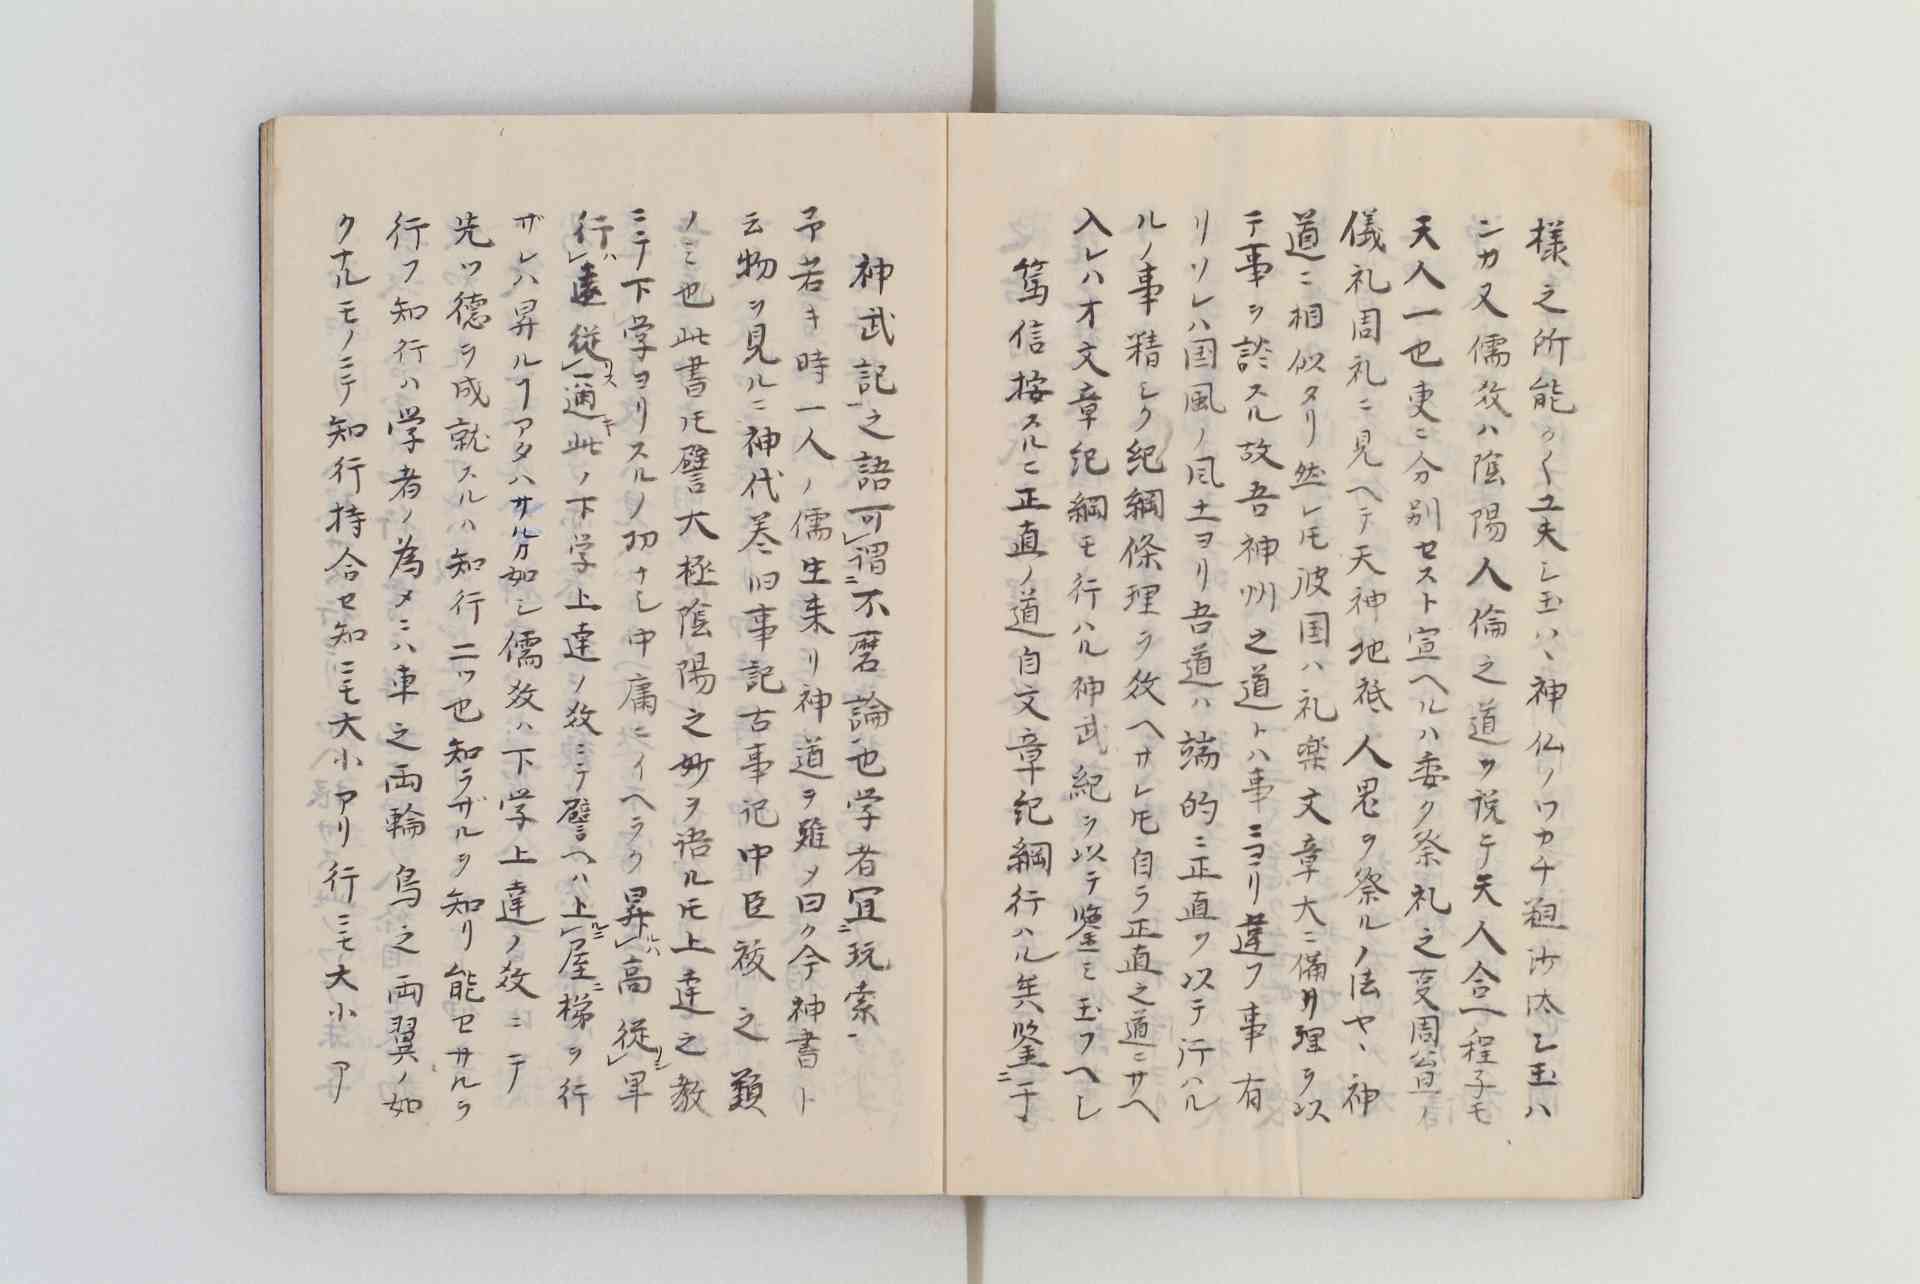 様之所能〳〵工夫シ玉ハヽ神仏ノワカチ粗沙汰シ玉ハ
ンカ又儒教ハ陰陽人倫之道ヲ説テ天人合一程子モ
天人一也更ニ分別セスト宣ヘルハ委ク祭礼之変周公旦ノ
儀礼周礼ニ見ヘテ天神地祇人鬼ヲ祭ルノ法ヤヽ神
道ニ相似タリ然レ𪜈彼国ハ礼楽文章大ニ備リ理ヲ以
テ事ヲ談スル故吾神州之道トハ事ニヨリ違フ事有
リソレハ国風ノ風土ヨリ吾道ハ端的ニ正直ヲ以テ行ハル
ルノ事精シク紀綱條理ヲ教ヘサレ𪜈自ラ正直之道ニサヘ
入レハ才文章紀綱モ行ハル神武紀ヲ以テ鑒ミ玉フヘシ
篤信按スルニ正直ノ道自文章紀綱行ハル矣鑒ニ于
神武記一之語可レ謂ニ不磨論一也学者宜ニ玩索一
予若キ時一人ノ儒生来リ神道ヲ難メ曰ク今神書ト
云物ヲ見ルニ神代巻旧事記古事記中臣祓之類
ノミ也此書𪜈譬大極陰陽之妙ヲ語ル𪜈上達之教
ニテ下学ヨリスルノ功ナシ中庸ニイヘラク昇ルハレ高従リスレ卑
行ハレ遠従リスレ邇キ此ノ下学上達ノ教ニテ譬ヘハ上ルニレ屋ニ梯ヲ行
ザレハ昇ルヿアタハサルカ如シ儒教ハ下学上達ノ教ニテ
先ツ徳ヲ成就スルハ知行二ツ也知ラザルヲ知リ能セサルヲ
行フ知行ハ学者ノ為メニハ車之両輪鳥之両翼ノ如
クナルモノニテ知行持合セ知ニモ大小アリ行ニモ大小ア